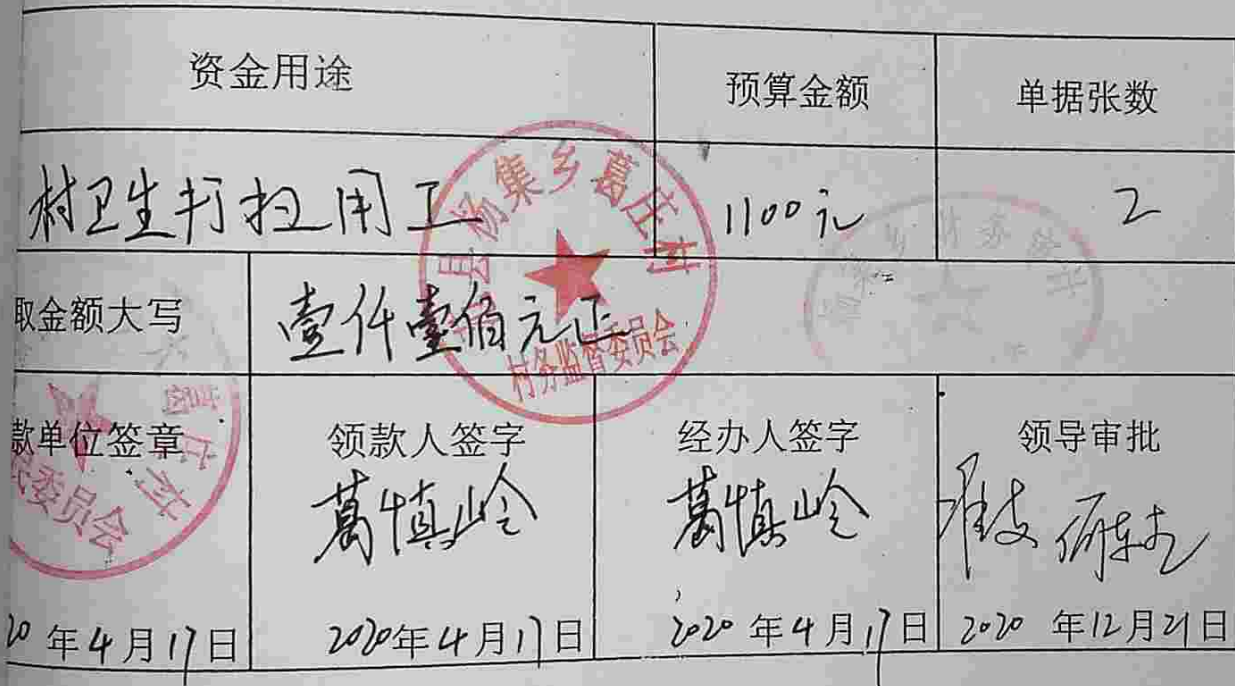 资金用途 预算金额 单据张数
村卫生打扫用工 1100元 2
取金额大写 壹仟壹佰元正
县杨集乡葛庄村
村务监督委员会
乡财务
款单位签章 领款人签字 经办人签字 领导审批
葛庄村
民委员会
葛慎岭 葛慎岭 准支
20年4月17日 2020年4月17日 2020年4月17日 2020年12月21日